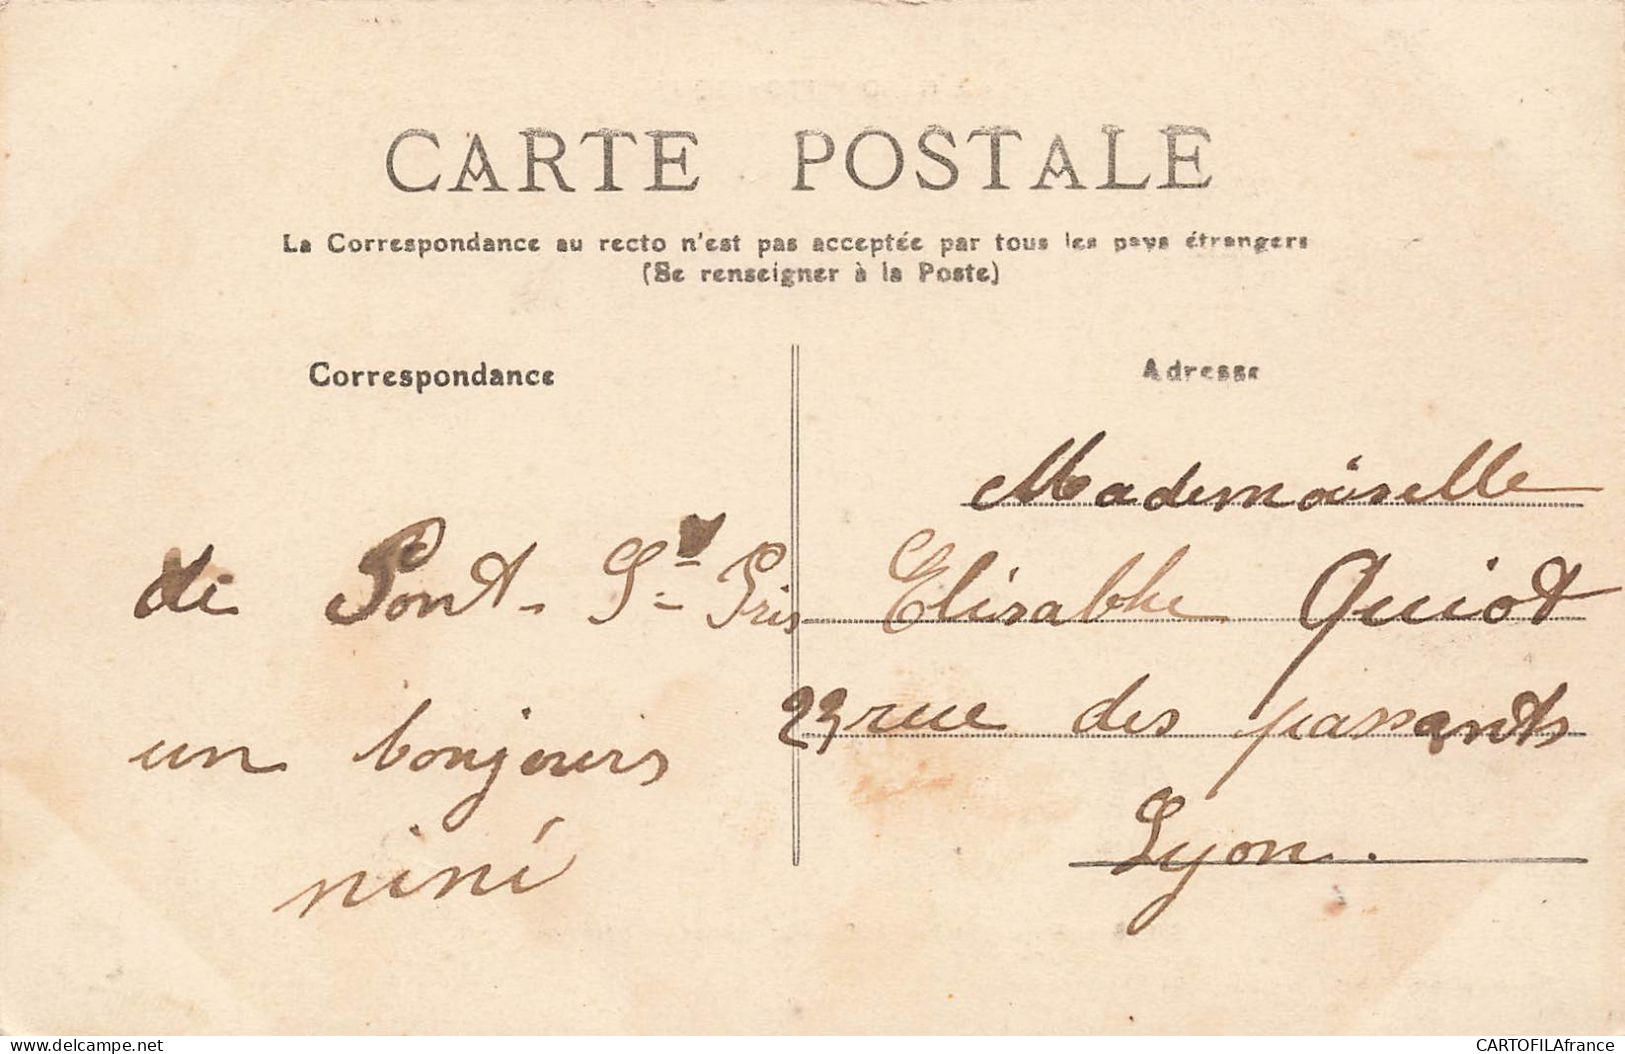 CARTE POSTALE
La Correspondance au recto n'est pas acceptée par tous les pays étrangers
(Se renseigner à la Poste)
Correspondance
de Pont-St-Pris
un bonjours
nini
Adresse
Mademoiselle
Elisabthe Quiot
23 rue des passants
Lyon.
www.delcampe.net
CARTOFILAfrance